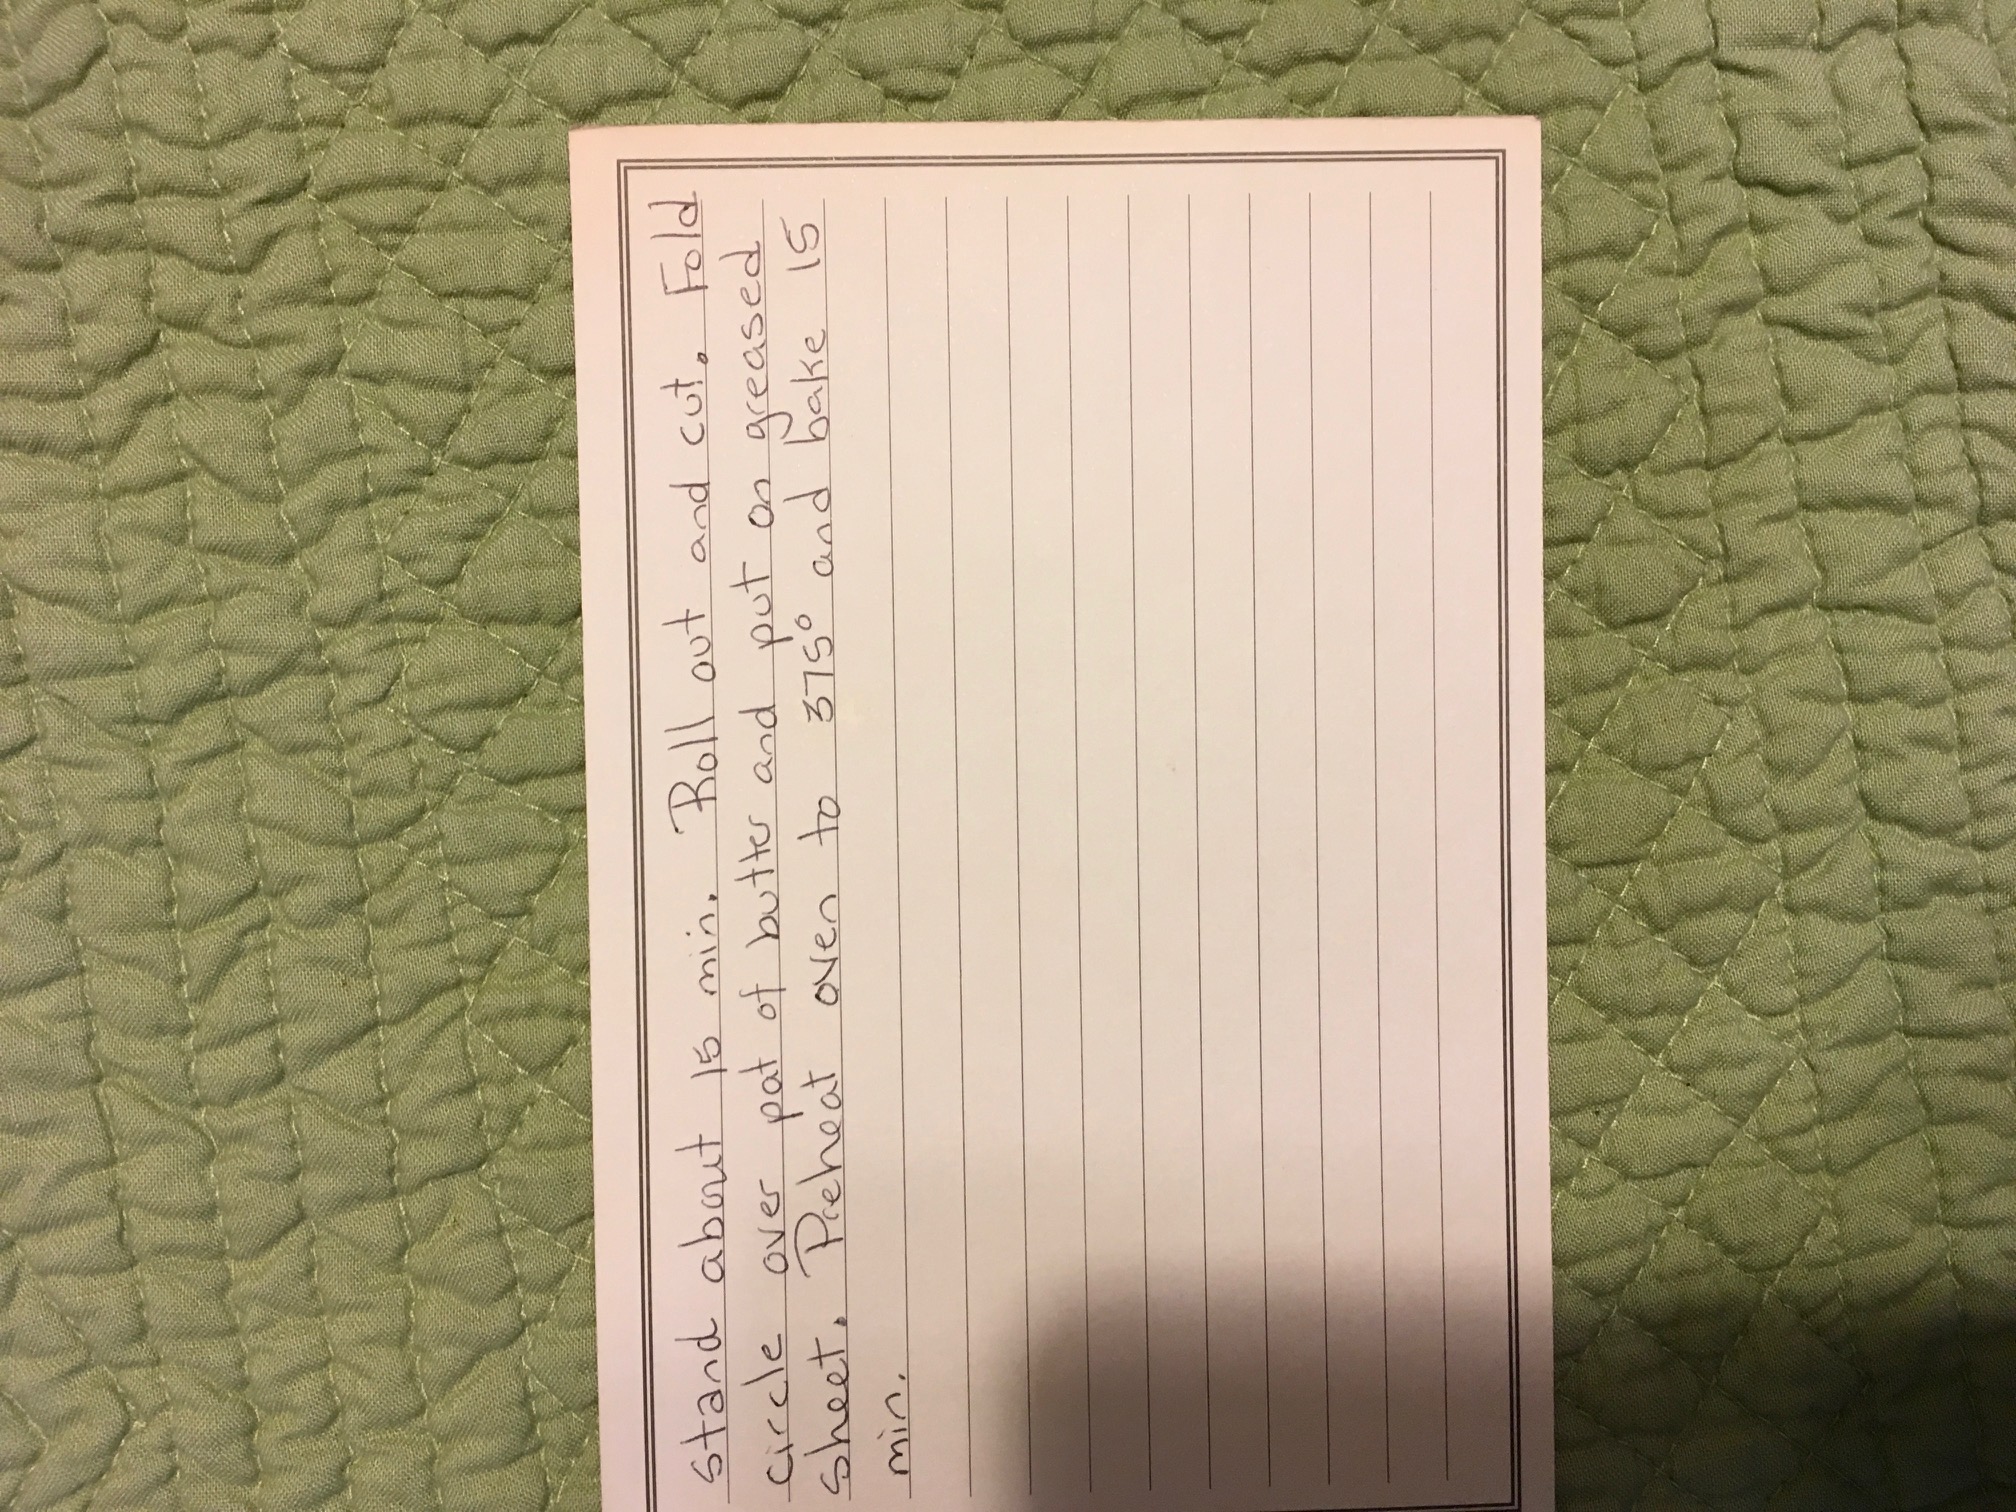 stand about 15 min. Roll out and cut. Fold
circle over pat of butter and put on greased
sheet. Preheat oven to 375° and bake 15
min.